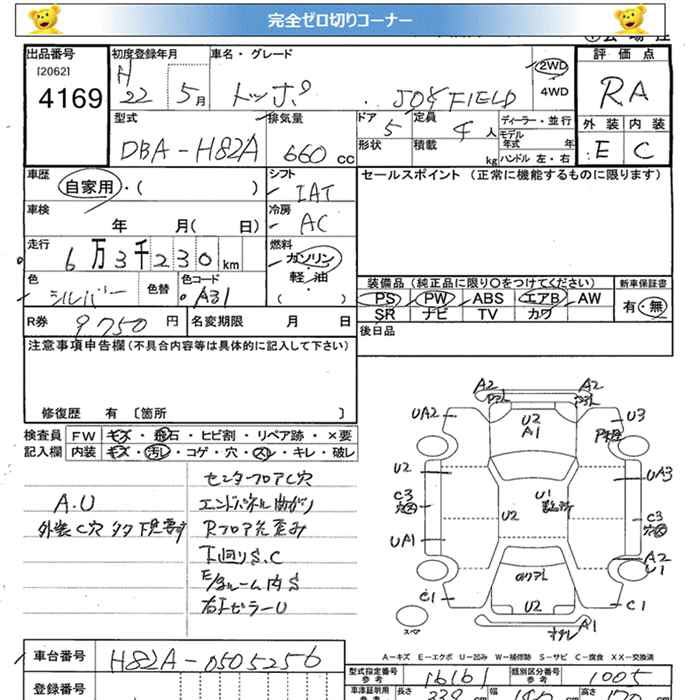 完全ゼロ切りコーナー
出品番号
[2062]
4169
初度登録年月
H
22 5月
車名・グレード
トッポ . JOY FIELD
2WD
4WD
評価点
RA
外装 内装
E C
型式
DBA-H82A
排気量
660 cc
ドア
5
定員
4 人
ディーラー・並行
モデル
年式 年
形状
積載
kg
ハンドル 左・右
車歴
自家用・( )
シフト
IAT
セールスポイント (正常に機能するものに限ります)
車検
年 月( 日)
冷房
AC
走行
6万3千230km
燃料
ガソリン
軽・油
( )
色
シルバー
色替
色コード
A31
装備品 (純正品に限り○をつけてください)
新車保証書
PS PW ABS エアB AW
有・無
SR ナビ TV カワ
R券 9750 円
名変期限 月 日
後日品
注意事項申告欄 (不具合内容等は具体的に記入して下さい)
修復歴 有 〔箇所 〕
検査員
記入欄
FW キズ・飛石・ヒビ割・リペア跡・×要
内装 キズ・汚レ・コゲ・穴・スレ・キレ・破レ
A.U
外装C穴 タタ 下見要す
センターフロアC穴
エンドパネル曲がり
Rフロア先歪み
下回りS.C
E/gルーム内S
右Fピラー U
A2 A2
UA2 U3
U2
A1
U2 UA3
U1
U2
C3 C3
UA1
A2
U1
C1 U2 C1
A1
スペア
A-キズ E-エクボ U-凹み W-補修跡 S-サビ C-腐食 XX-交換済
車台番号 H82A-0505256
登録番号
型式指定番号
参考
16161
類別区分番号
参考
1005
車検証明用
参考
長さ 339 幅 高さ